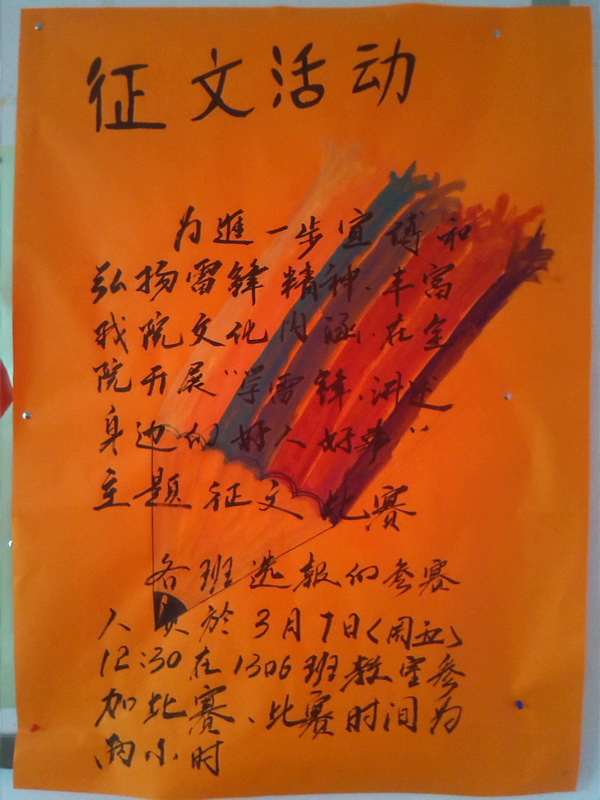 征文活动
为進一步宣传和
弘扬雷锋精神、丰富
我院文化内涵、在全
院开展“学雷锋、讲述
身边的好人好事”
主题征文比赛
各班选报的参赛
人员於3月7日(周五)
12:30在1306班教室参
加比赛、比赛时间为
两小时